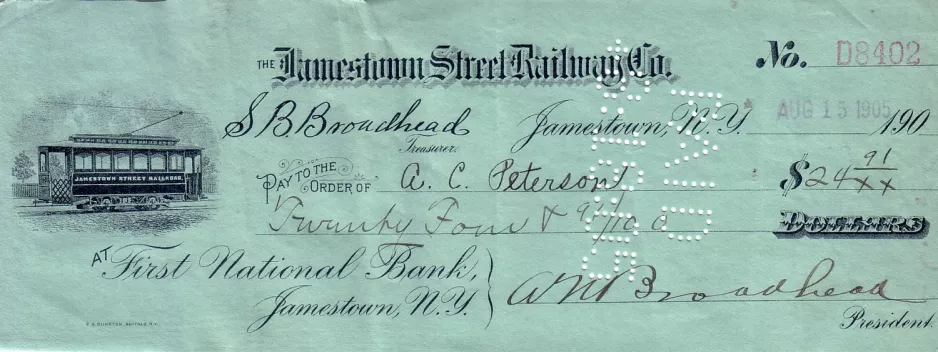 THE Jamestown Street Railway Co. No. D8402
S B Broadhead Jamestown, N.Y. AUG 15 1905 190
Treasurer.
JAMESTOWN STREET RAILROAD
PAY TO THE ORDER OF A. C. Peterson $24 91/xx
Twenty Four & 91/100 DOLLARS
AT First National Bank,
Jamestown, N.Y. A N Broadhead
President.
BUFFALO, N.Y.
PAID